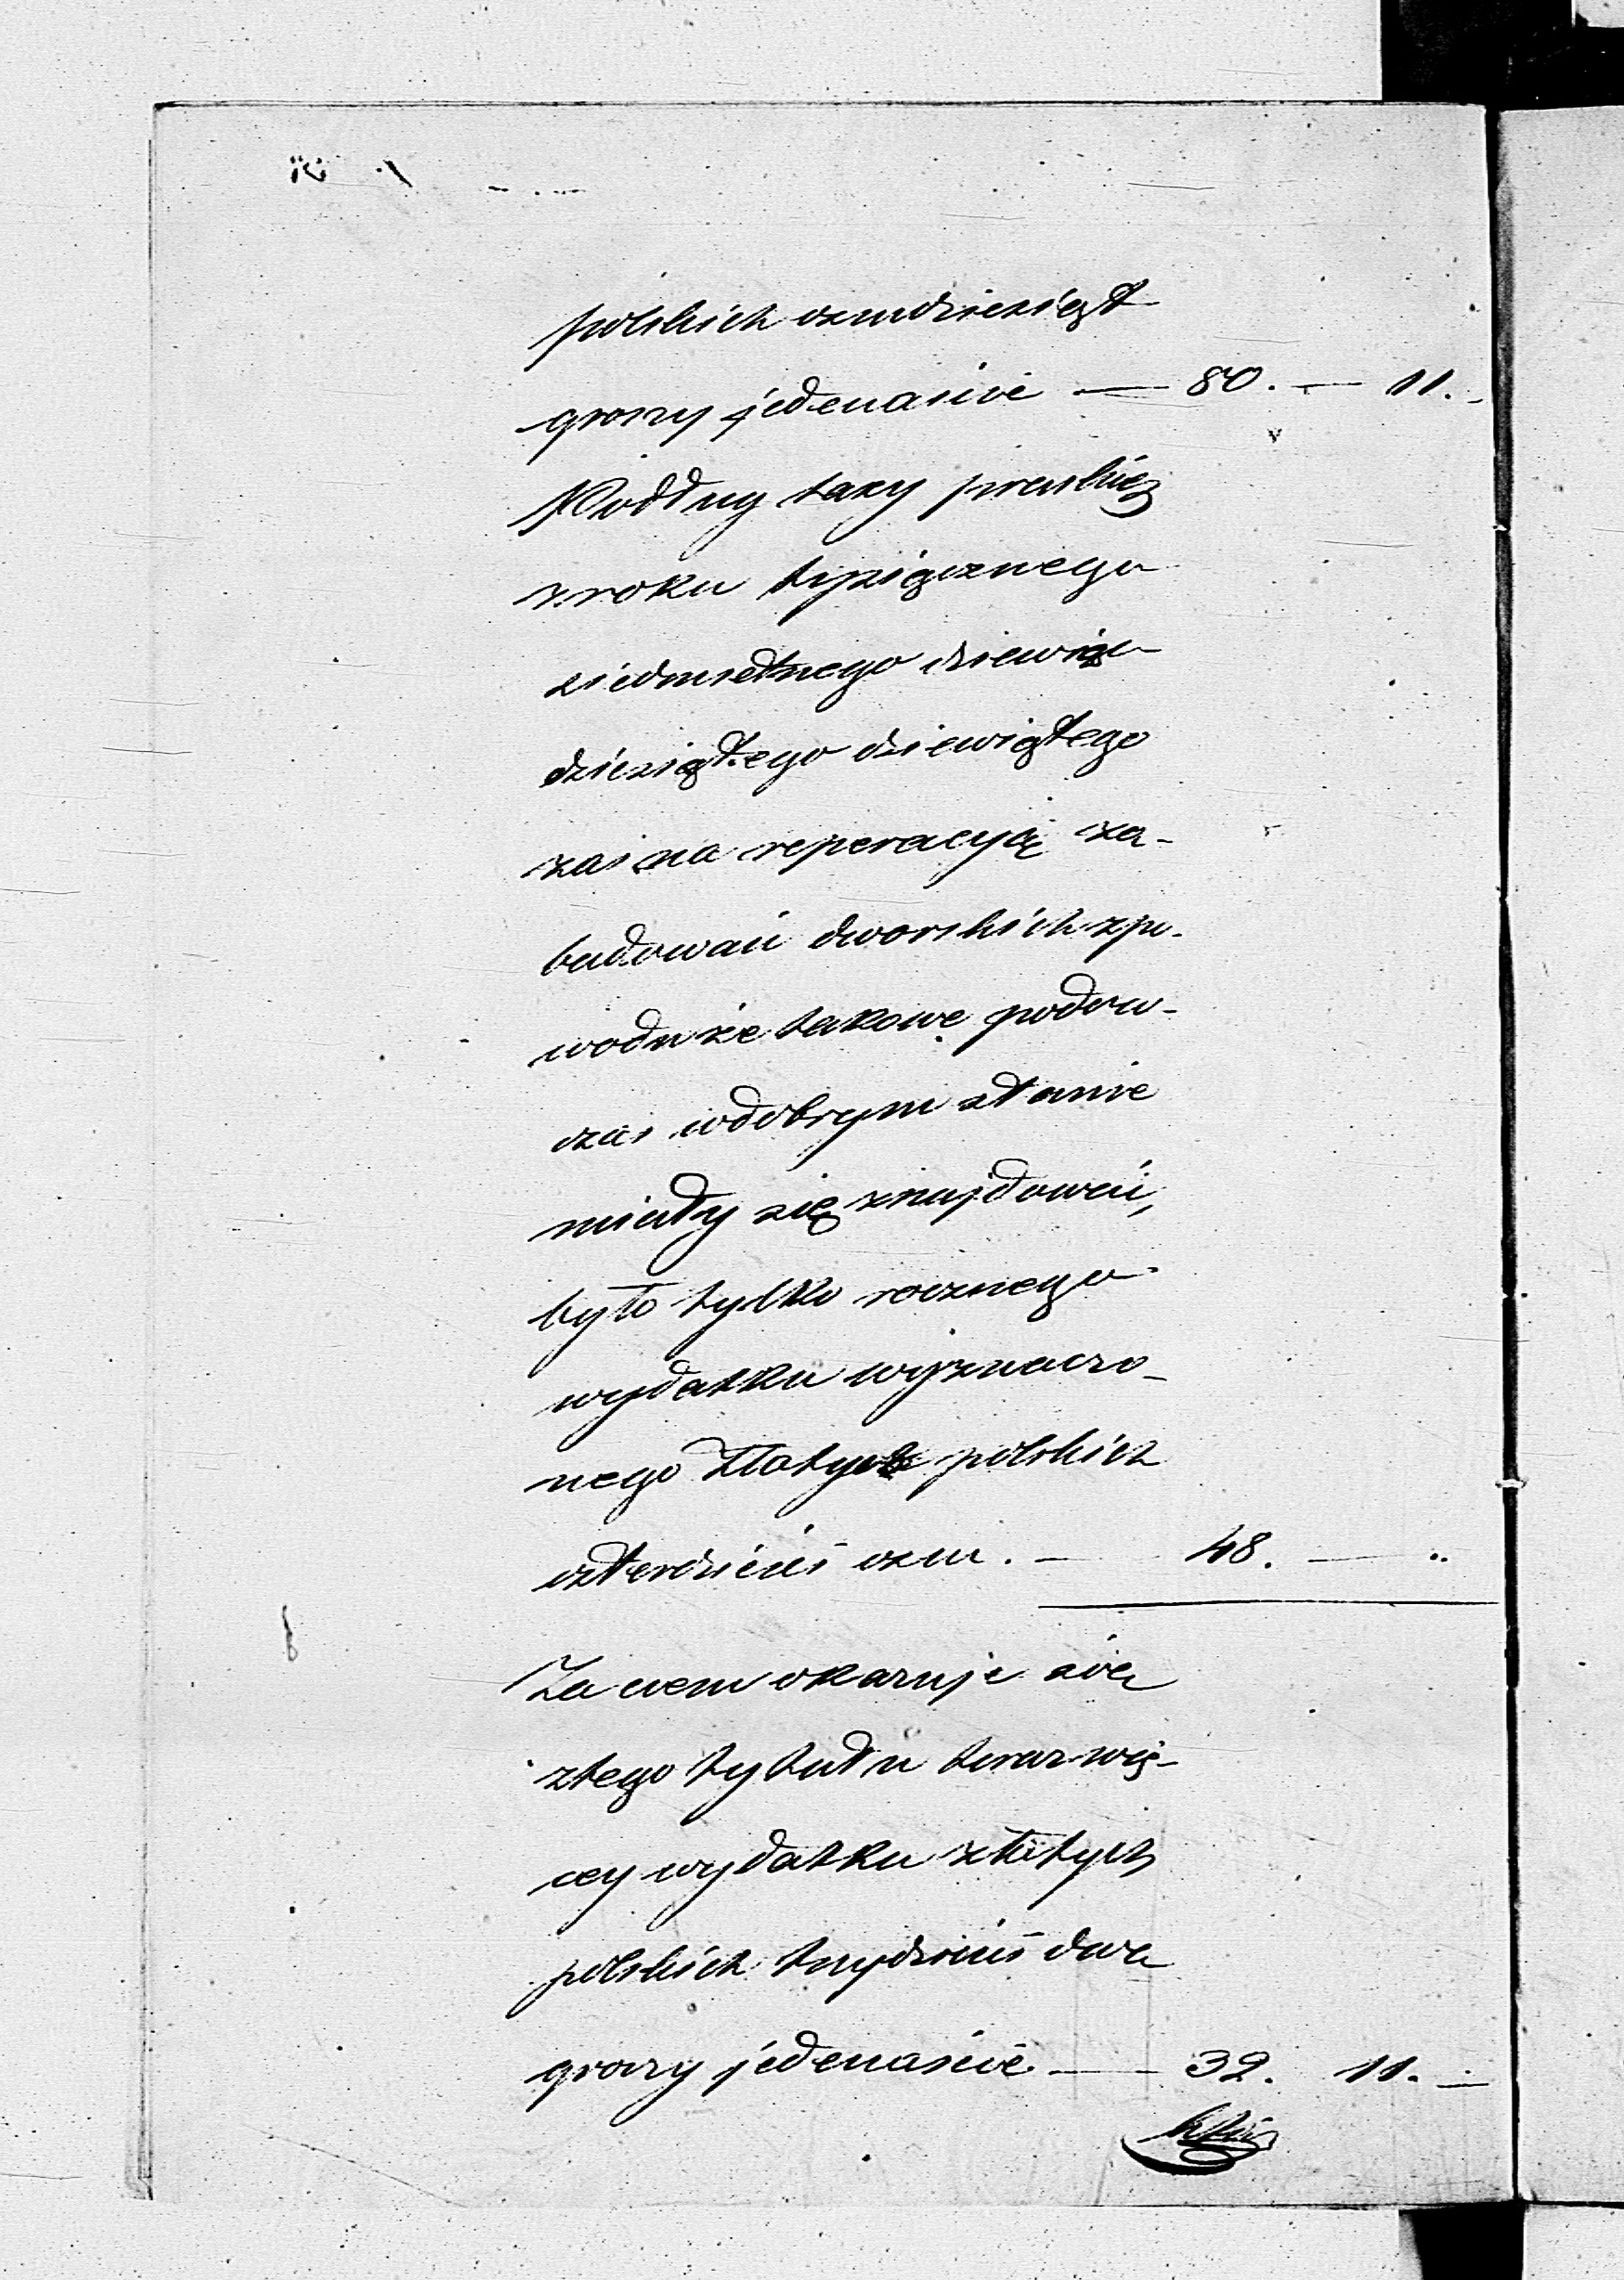 polskich ozmdziesiąt
groszy jedenaście — 80. — 11. -
Podług taxy pruskiej
z roku tysiącznego
siedmsetnego dziewięć
dziesiątego dziewiątego
zaś na reperacyją za-
budowań dworskich z po-
wodu że takowe podów-
czas w dobrym stanie
miały się znajdować,
było tylko rocznego
wydatku wyznaczo-
nego Złotych polskich
czterdzieści ozm. — 48. — "
Za czem okazuje się
z tego tytułu teraz wię-
cey wydatku złotych
polskich trzydzieści dwa
groszy jedenaście — 32. 11. —